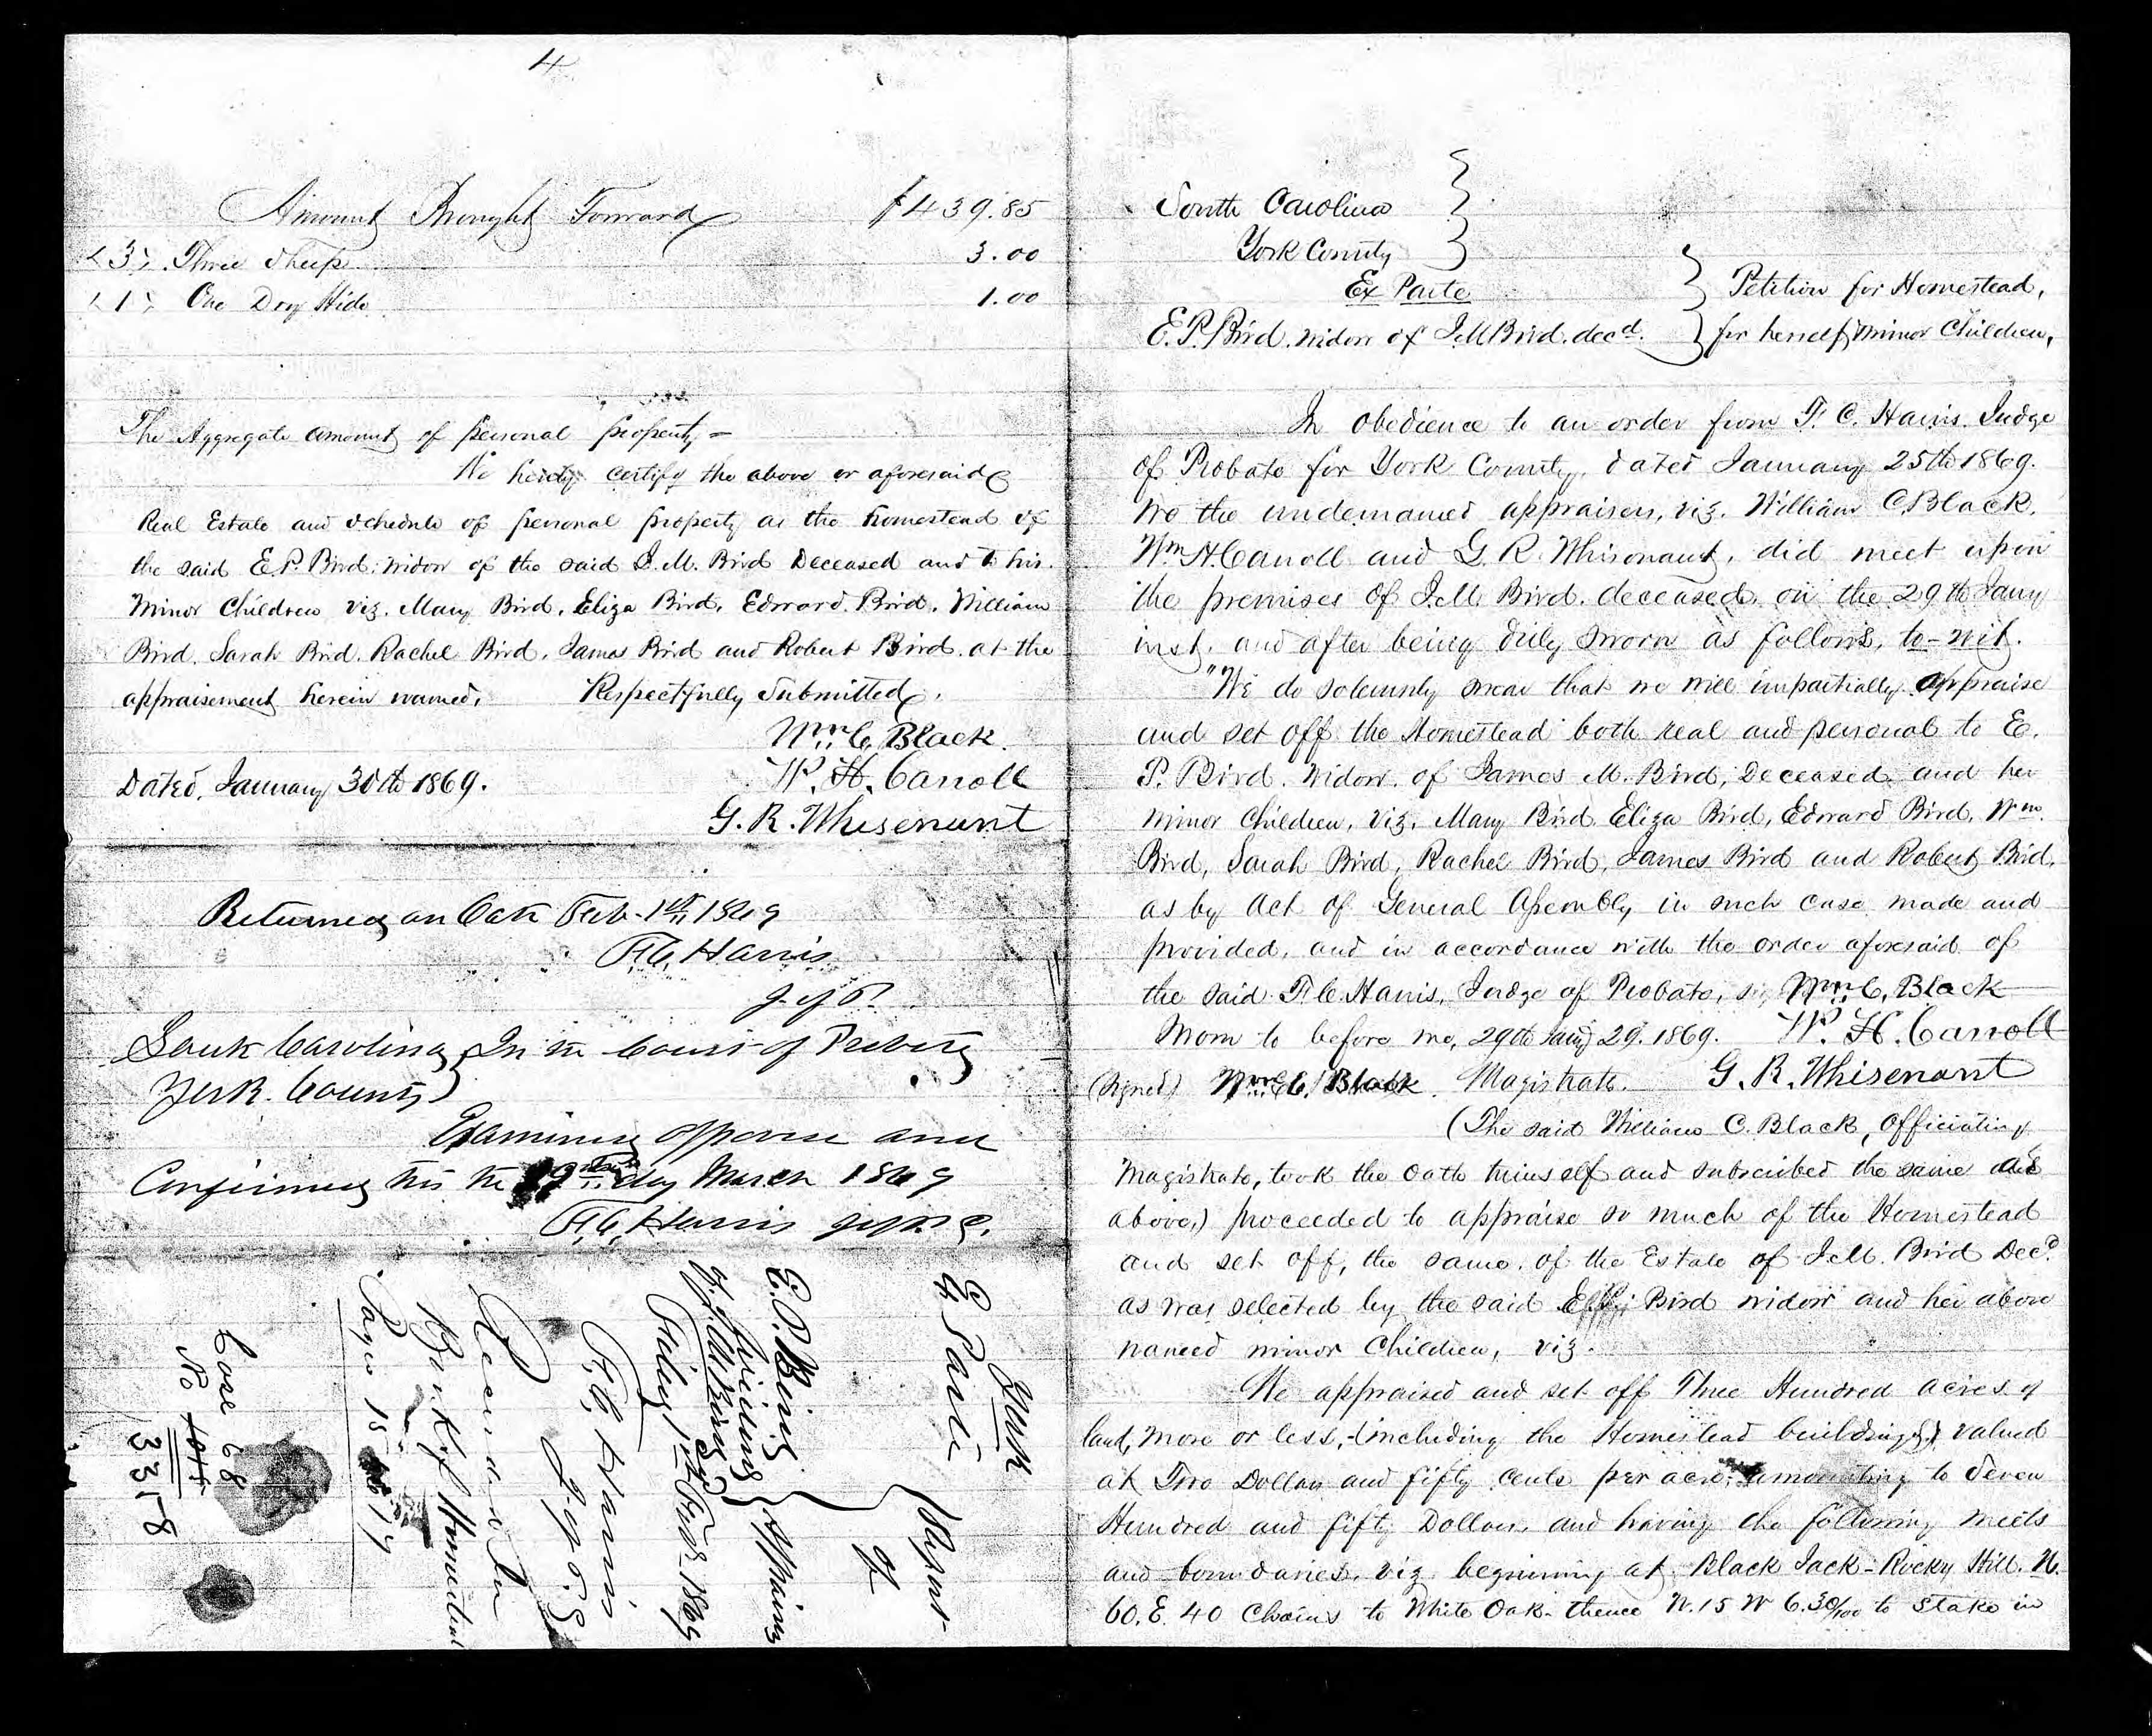 4
Amount Brought Forward $439.85
<3> Three Sheep 3.00
<1> One Dry Hide 1.00
The Aggregate amount of personal property =
We hereby certify the above or aforesaid
Real Estate and schedule of personal property as the homestead of
the said E.P. Bird. widow of the said J.M. Bird Deceased and to his
minor Children viz. Mary Bird, Eliza Bird, Edward Bird, William
Bird, Sarah Bird, Rachel Bird, James Bird and Robert Bird. at the
appraisement herein named. Respectfully Submitted.
Wm. C. Black
W. H. Carroll
Dated, January 30th 1869.
G. R. Whisenant
Returned on Oath Feb. 1st 1869
F.C. Harris
J. of P.
South Carolina } In the Court of Probate
York County }
Examined approved and
Confirmed this the day March 1869
F.C. Harris
York
Ex Parte
E. P. Bird
Report
of
Appraisers
Filed 1st Feb. 1869
F. C. Harris
Recorded in
Book of Homestead
Pages 15
Case 68
No
3358
South Carolina }
York County }
Ex Parte } Petition for Homestead,
E. P. Bird. widow of J.M Bird. decd. } for herself & minor Children,
In obedience to an order from F. C. Harris. Judge
of Probate for York County, dated January 25th 1869.
We the undernamed appraisers, viz. William C. Black,
Wm. H. Carroll and G. R. Whisonant, did meet upon
the premises of J.M. Bird. deceased, on the 29th Jany
inst. and after being duly sworn as follows, to-wit.
"We do solemnly swear that we will impartially appraise
and set off the Homestead both real and personal to E.
P. Bird. Widow, of James M. Bird, Deceased, and her
minor Children, viz, Mary Bird Eliza Bird, Edward Bird, Wm.
Bird, Sarah Bird, Rachel Bird, James Bird and Robert Bird.
as by Act of General Assembly in such case made and
provided, and in accordance with the order aforesaid of
the said F.C. Harris, Judge of Probate, Wm. C. Black
Sworn to before me, 29th Jany 29. 1869. W. H. Carroll
(Signed) Wm. C. Black. Magistrate. G. R. Whisenant
(The said William C. Black, Officiating
Magistrate, took the oath himself and subscribed the same as
above,) proceeded to appraise so much of the Homestead
and set off, the same, of the Estate of J.M. Bird Decd.
as was selected by the said Bird widow and her above
named minor Children, viz.
We appraised and set off Three Hundred acres of
land, more or less, (including the Homestead buildings) valued
at Two Dollars and fifty cents per acre, amounting to Seven
Hundred and fifty Dollars, and having the following meets
and boundaries, viz beginning at Black Jack - Rocky Hill. N.
60. E. 40 Chains to White Oak - thence N. 15 W 6.30/100 to Stake in